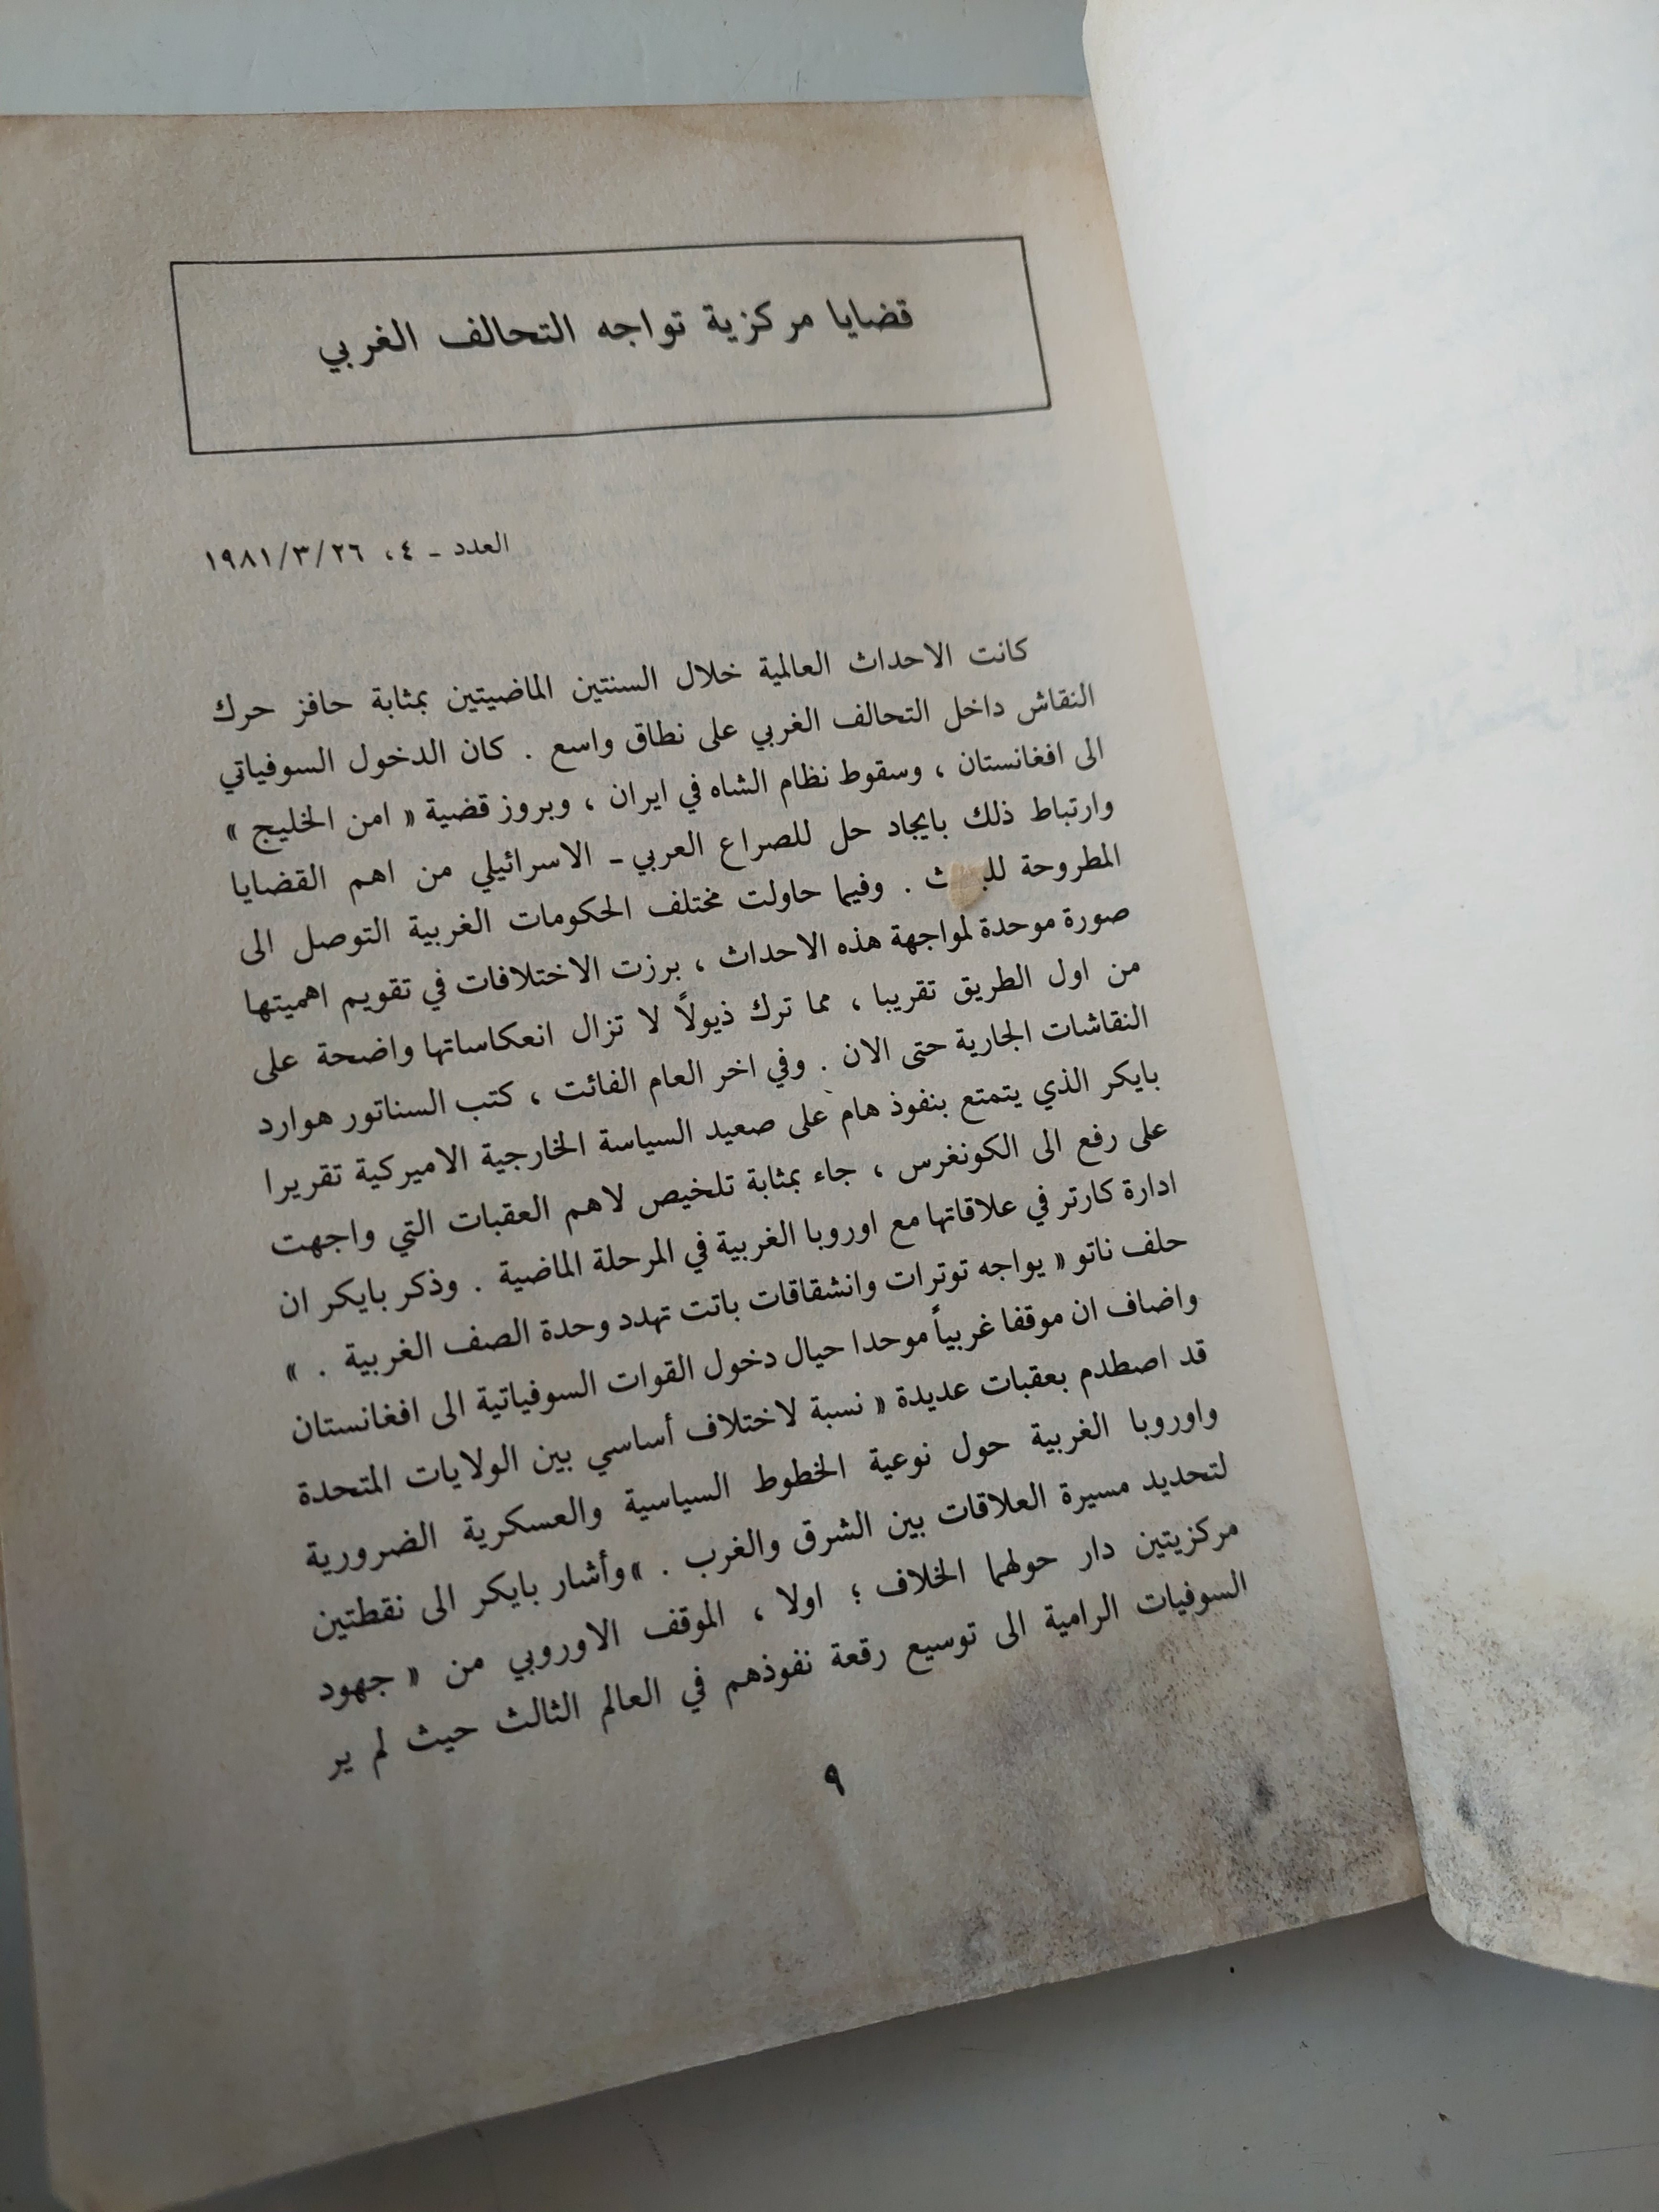 قضايا مركزية تواجه التحالف الغربي
العدد ـ ٤، ١٩٨١/٣/٢٦
كانت الاحداث العالمية خلال السنتين الماضيتين بمثابة حافز حرك
النقاش داخل التحالف الغربي على نطاق واسع . كان الدخول السوفياتي
الى افغانستان ، وسقوط نظام الشاه في ايران ، وبروز قضية « امن الخليج »
وارتباط ذلك بايجاد حل للصراع العربي ـ الاسرائيلي من اهم القضايا
المطروحة . وفيما حاولت مختلف الحكومات الغربية التوصل الى
صورة موحدة لمواجهة هذه الاحداث ، برزت الاختلافات في تقويم اهميتها
من اول الطريق تقريبا ، مما ترك ذيولاً لا تزال انعكاساتها واضحة على
النقاشات الجارية حتى الان . وفي اخر العام الفائت ، كتب السناتور هوارد
بايكر الذي يتمتع بنفوذ هام على صعيد السياسة الخارجية الاميركية تقريرا
على رفع الى الكونغرس ، جاء بمثابة تلخيص لاهم العقبات التي واجهت
ادارة كارتر في علاقاتها مع اوروبا الغربية في المرحلة الماضية . وذكر بايكر ان
حلف ناتو « يواجه توترات وانشقاقات باتت تهدد وحدة الصف الغربية . »
واضاف ان موقفا غربياً موحدا حيال دخول القوات السوفياتية الى افغانستان
قد اصطدم بعقبات عديدة « نسبة لاختلاف أساسي بين الولايات المتحدة
واوروبا الغربية حول نوعية الخطوط السياسية والعسكرية الضرورية
لتحديد مسيرة العلاقات بين الشرق والغرب . » وأشار بايكر الى نقطتين
مركزيتين دار حولهما الخلاف ؛ اولا ، الموقف الاوروبي من « جهود
السوفيات الرامية الى توسيع رقعة نفوذهم في العالم الثالث حيث لم ير
٩